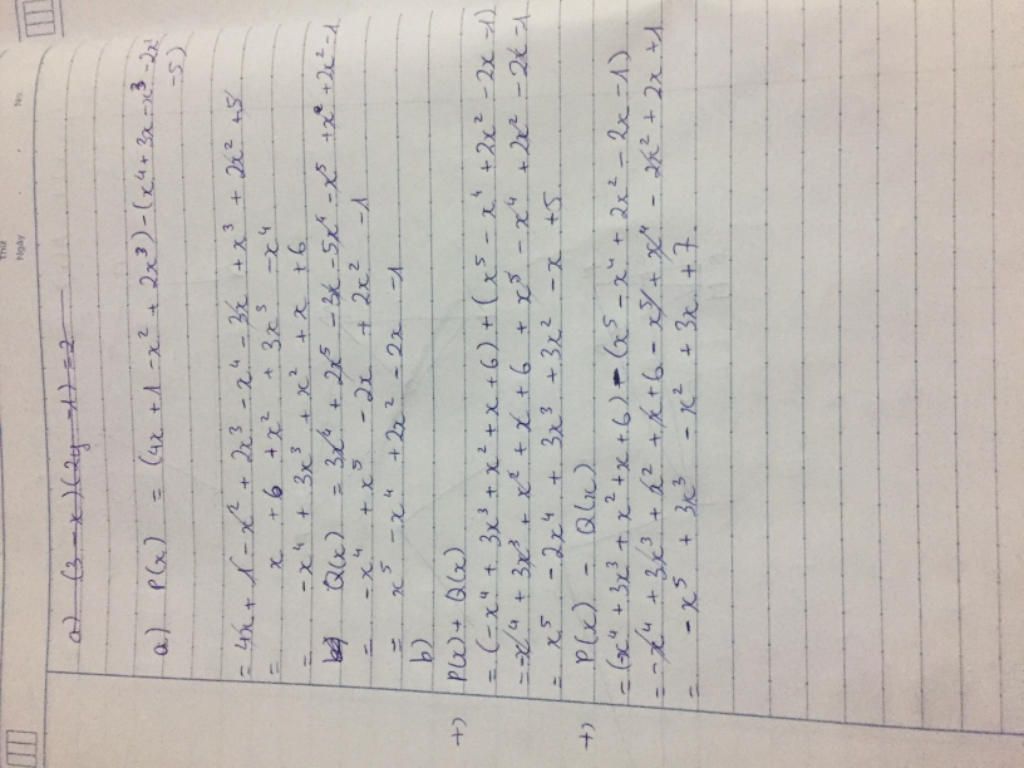 Thứ
Ngày
No.
a) (3 - x)(2y - 1) = 2
a) P(x) = (4x + 1 - x² + 2x³) - (x⁴ + 3x - x³ - 2x²
- 5)
= 4x + 1 - x² + 2x³ - x⁴ - 3x + x³ + 2x² + 5
= x + 6 + x² + 3x³ - x⁴
= - x⁴ + 3x³ + x² + x + 6
Q(x) = 3x⁴ + 2x⁵ - 3x - 5x⁴ - x⁵ + x + 2x² - 1
= - x⁴ + x⁵ - 2x + 2x² - 1
= x⁵ - x⁴ + 2x² - 2x - 1
b)
+) P(x) + Q(x)
= (- x⁴ + 3x³ + x² + x + 6) + (x⁵ - x⁴ + 2x² - 2x - 1)
= - x⁴ + 3x³ + x² + x + 6 + x⁵ - x⁴ + 2x² - 2x - 1
= x⁵ - 2x⁴ + 3x³ + 3x² - x + 5
+) P(x) - Q(x)
= (-x⁴ + 3x³ + x² + x + 6) - (x⁵ - x⁴ + 2x² - 2x - 1)
= - x⁴ + 3x³ + x² + x + 6 - x⁵ + x⁴ - 2x² + 2x + 1
= - x⁵ + 3x³ - x² + 3x + 7